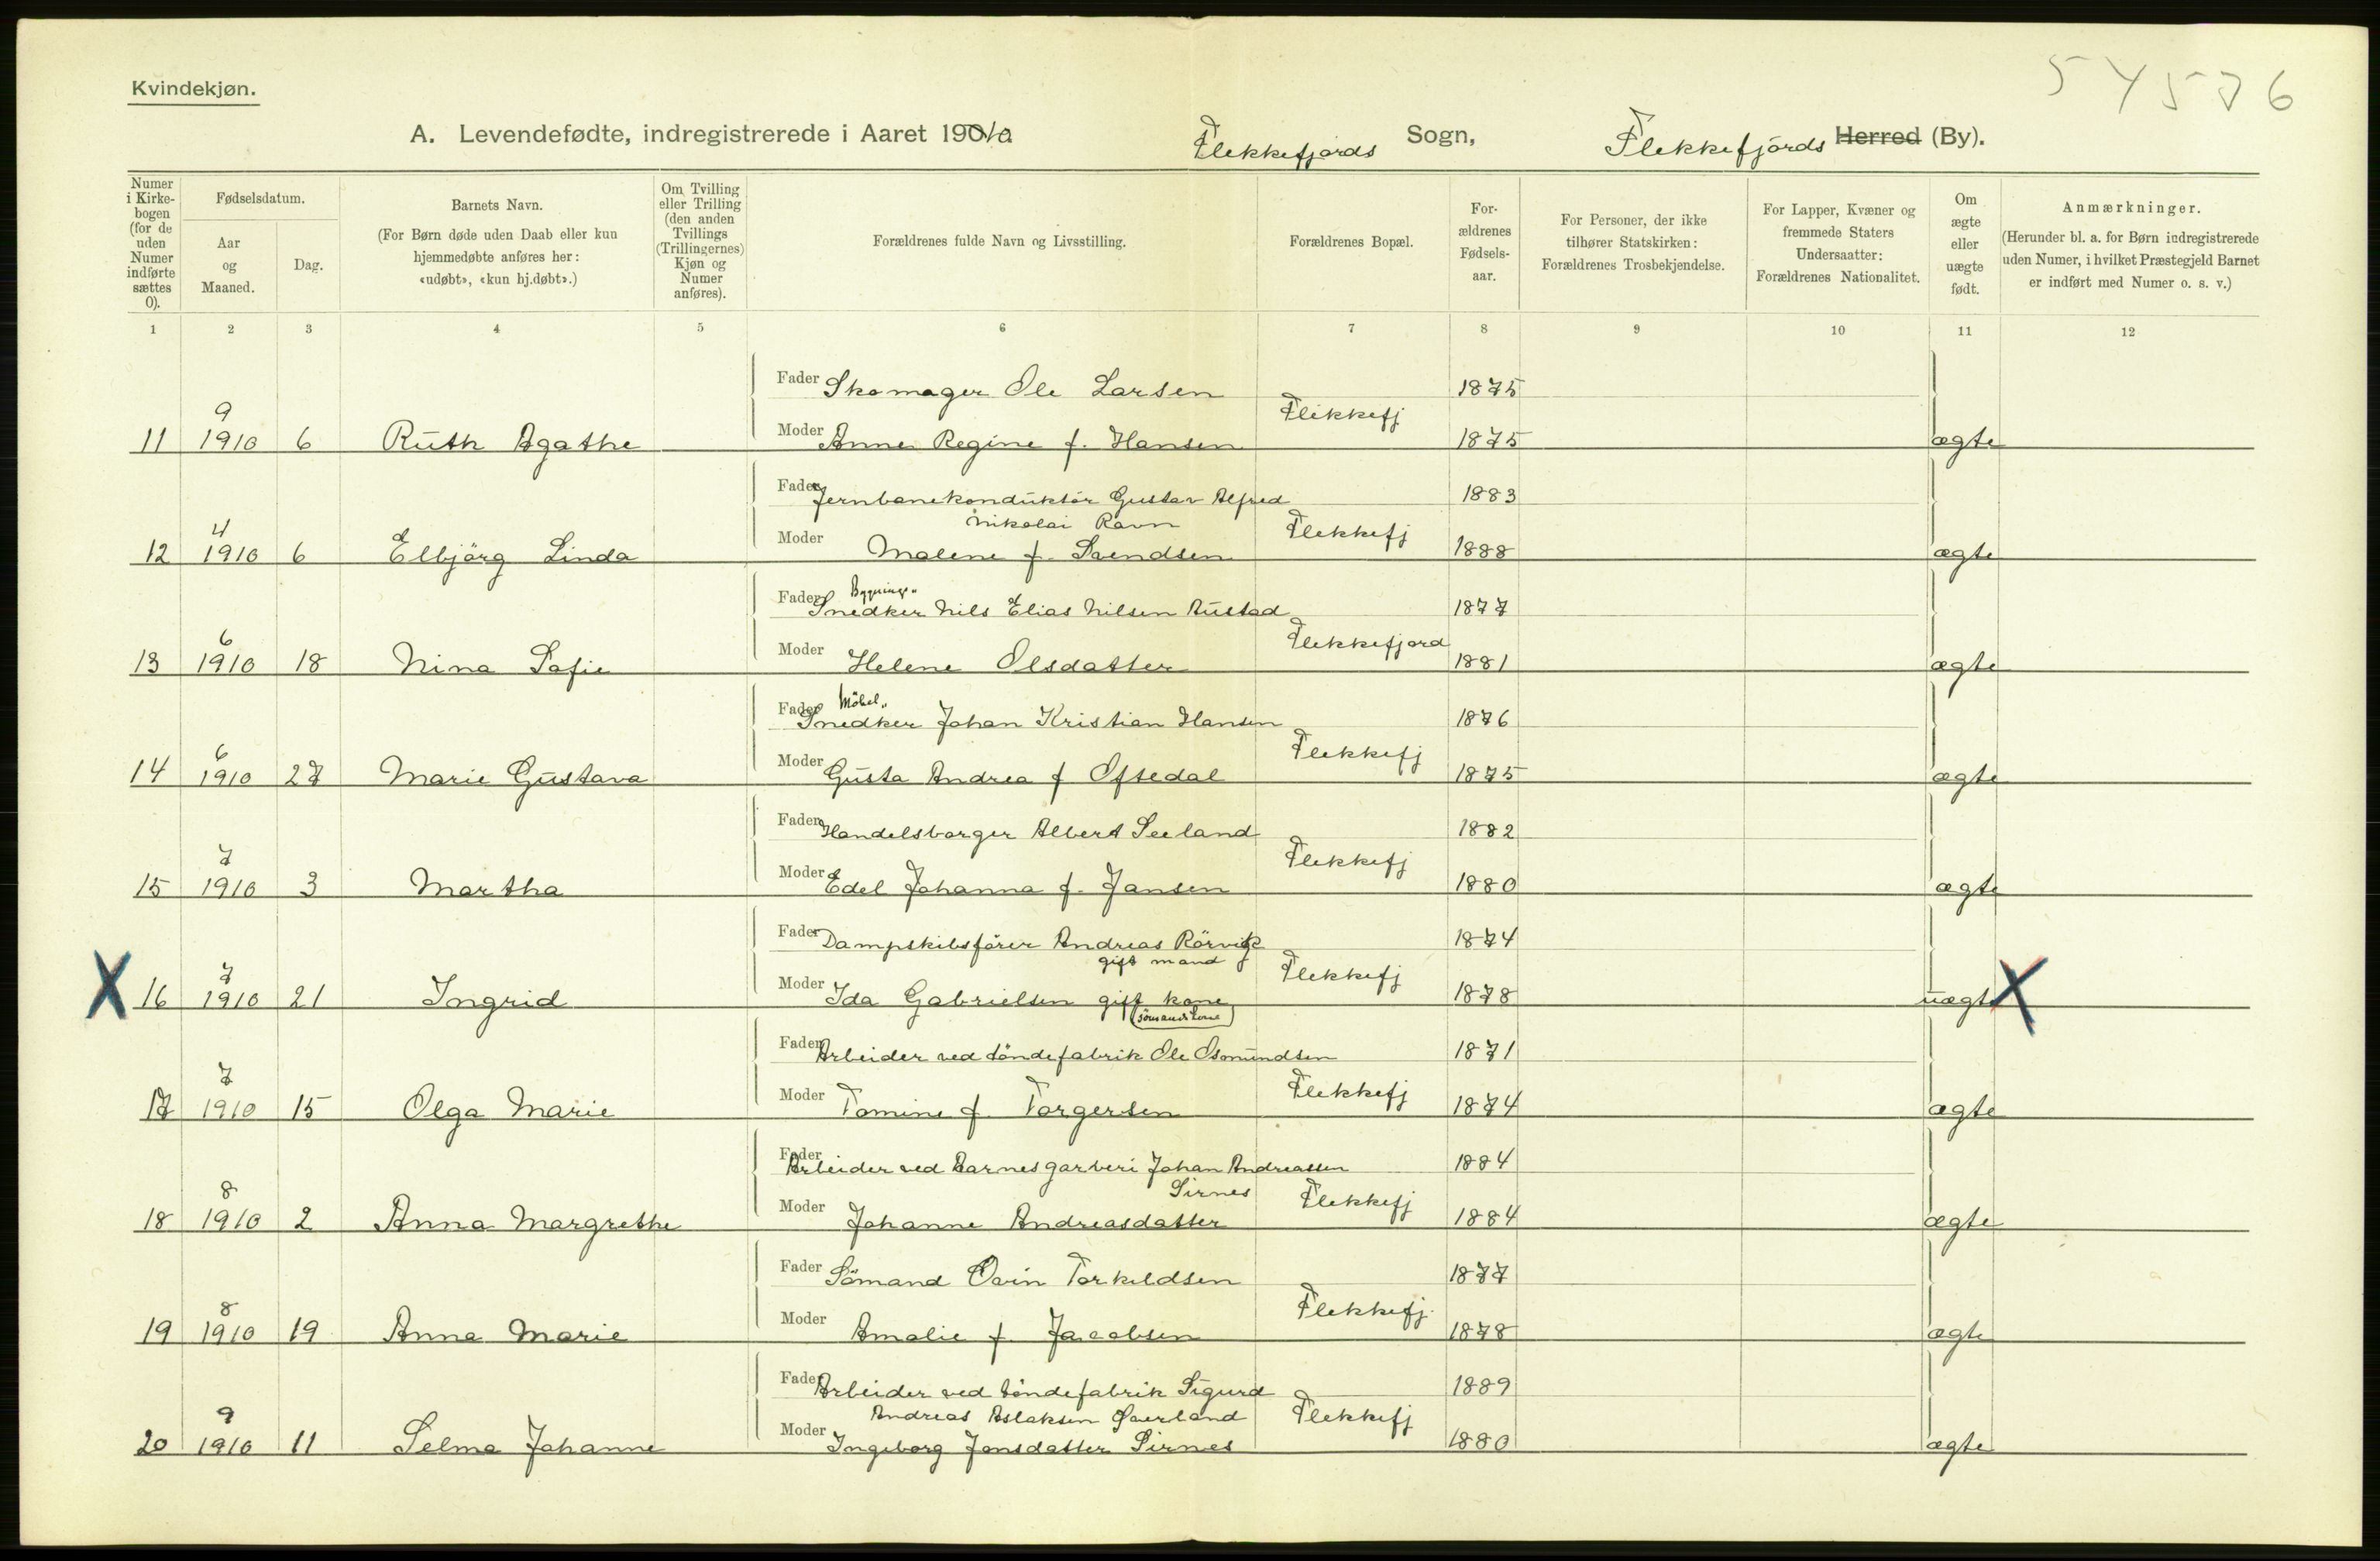 54576
Kvindekjøn.
A. Levendefødte, indregistrerede i Aaret 1910 Flekkefjords Sogn, Flekkefjords Herred (By).
Numer i Kirkebogen (for de uden Numer indførte sættes 0).
Fødselsdatum.
Aar og Maaned.
Dag.
Barnets Navn.
(For Børn døde uden Daab eller kun hjemmedøbte anføres her: «udøbt», «kun hj.døbt».)
Om Tvilling eller Trilling (den anden Tvillings (Trillingernes) Kjøn og Numer anføres).
Forældrenes fulde Navn og Livsstilling.
Forældrenes Bopæl.
For-ældrenes Fødsels-aar.
For Personer, der ikke tilhører Statskirken: Forældrenes Trosbekjendelse.
For Lapper, Kvæner og fremmede Staters Undersaatter: Forældrenes Nationalitet.
Om ægte eller uægte født.
Anmærkninger.
(Herunder bl. a. for Børn indregistrerede uden Numer, i hvilket Præstegjeld Barnet er indført med Numer o. s. v.)
1 2 3 4 5 6 7 8 9 10 11 12
Fader Skomager Ole Larsen 1875
11 9 1910 6 Ruth Agathe Moder Anne Regine f. Hansen Flekkefj 1875 ægte
Fader Jernbanekonduktör Gustav Alfred 1883
Nikolai Ravn
12 4 1910 6 Elbjörg Linda Moder Malene f. Svendsen Flekkefj 1888 ægte
Bygnings"
Fader Snedker Nils Elias Nilsen Rustad 1877
13 6 1910 18 Nina Sofie Moder Helene Olsdatter Flekkefjord 1881 ægte
Möbel"
Fader Snedker Johan Kristian Hansen 1876
14 6 1910 27 Marie Gustava Moder Gusta Andrea f Oftedal Flekkefj 1875 ægte
Fader Handelsborger Albert Seeland 1882
15 7 1910 3 Martha Moder Edel Johanna f. Jansen Flekkefj 1880 ægte
Fader Dampskibsförer Andreas Rörvik 1874
gift mand
X 16 7 1910 21 Ingrid Moder Ida Gabrielsen gift kone Flekkefj 1878 uægte X
(sömands kone)
Fader Arbeider ved töndefabrik Ole Osmundsen 1871
17 7 1910 15 Olga Marie Moder Tomine f. Torgersen Flekkefj 1874 ægte
Fader Arbeider ved Aarnes garveri Johan Andreassen 1884
Sirnes
18 8 1910 2 Anna Margrethe Moder Johanne Andreasdatter Flekkefj 1884 ægte
Fader Sömand Torkeldsen 1877
19 8 1910 19 Anna Marie Moder Amalie f. Jacobsen Flekkefj. 1878 ægte
Fader Arbeider ved töndefabrik Sigurd 1889
Andreas Aslaksen
20 9 1910 11 Selma Johanne Moder Ingeborg Jonsdatter Sirnes Flekkefj 1880 ægte